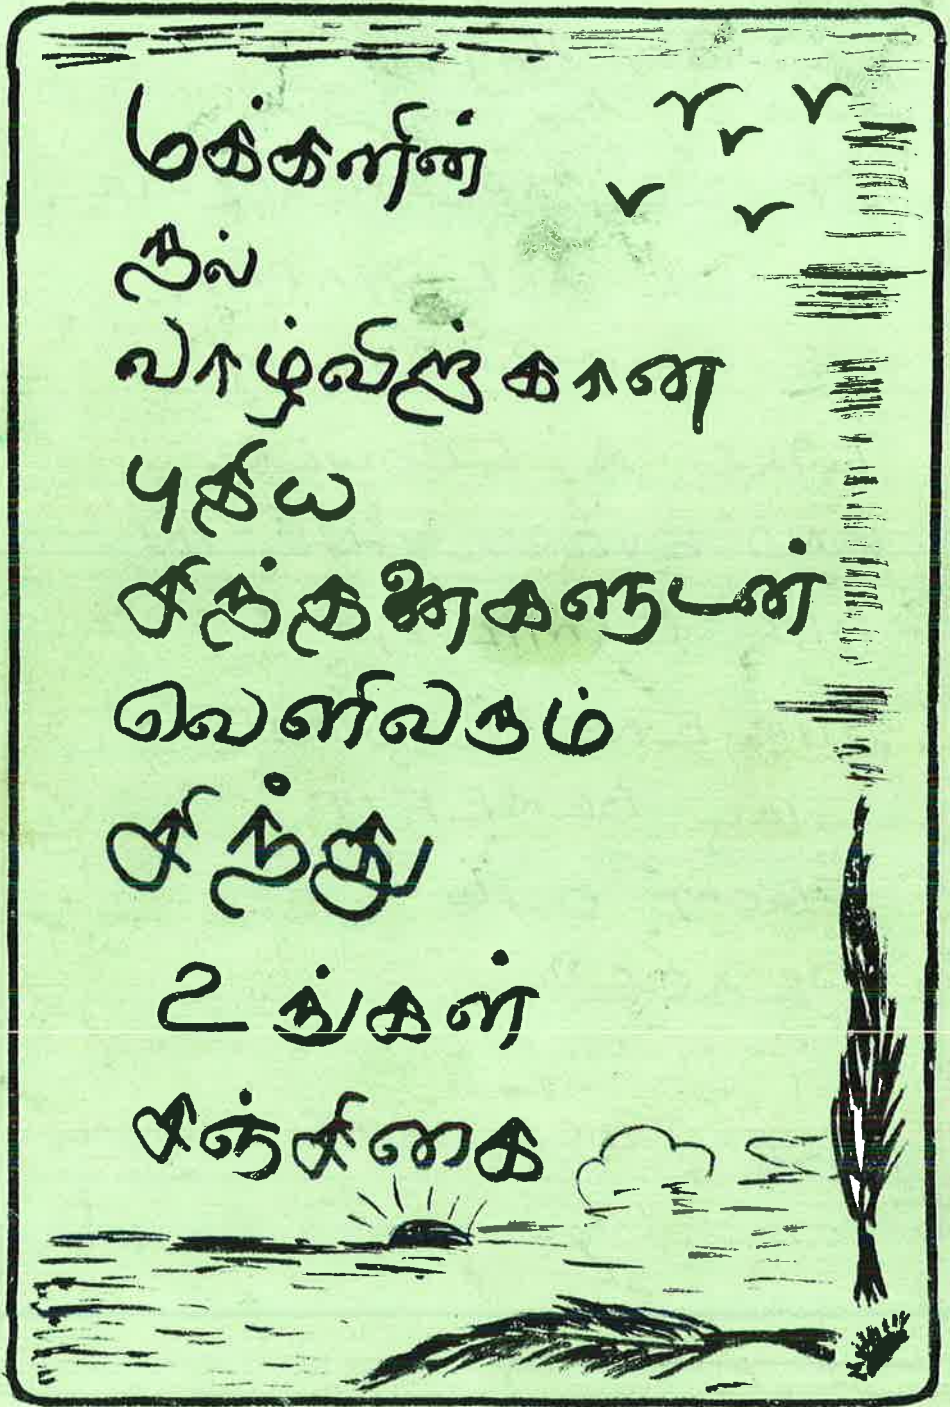 மக்களின்
நல்
வாழ்விற்கான
புதிய
சிந்தனைகளுடன்
வெளிவரும்
சிந்து
உங்கள்
சஞ்சிகை